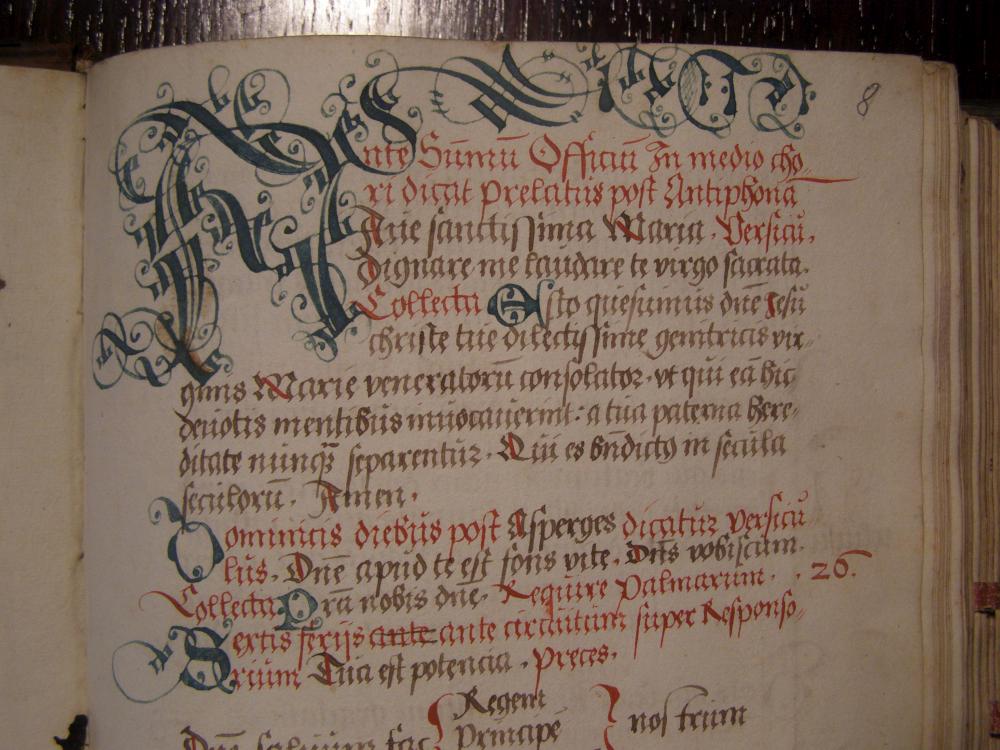 8
Ante Sum̄ū Officiū In medio cho
ri dicat Prelatus post Antiphonā
Aue sanctissima Maria . Versicū.
Dignare me laudare te virgo sacrata.
Collecta Esto quesumus dn̄e Jesū
christe tue dilectissime genitricis vir-
ginis Marie veneratorū consolator . vt qui eā hic
deuotis mentibus inuocauerint : a tua paterna here-
ditate nunq̄ separentur . Qui es bn̄dictus in secula
seculorū . Amen .
Dominicis diebus post Asperges dicatur versicū
lus . Dn̄e apud te est fons vite . Dn̄s vobiscum.
Collecta Prā nobis dn̄e . Require Palmarum . . 26.
Sextis ferijs ante ante circuitum super Responso-
rium Tua est potencia . Preces .
Regem
Dn̄e saluum fac Principē nostrum